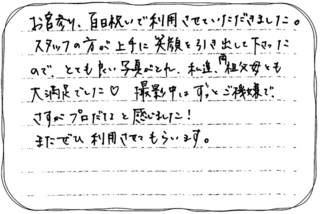 お宮参り、百日祝いで利用させていただきました。
スタッフの方が上手に笑顔を引き出して下さった
ので、とても良い写真がとれ、私達、両祖父母とも
大満足でした♡ 撮影中はずっとご機嫌で
さすがプロだなと感じました！
またぜひ利用させてもらいます。